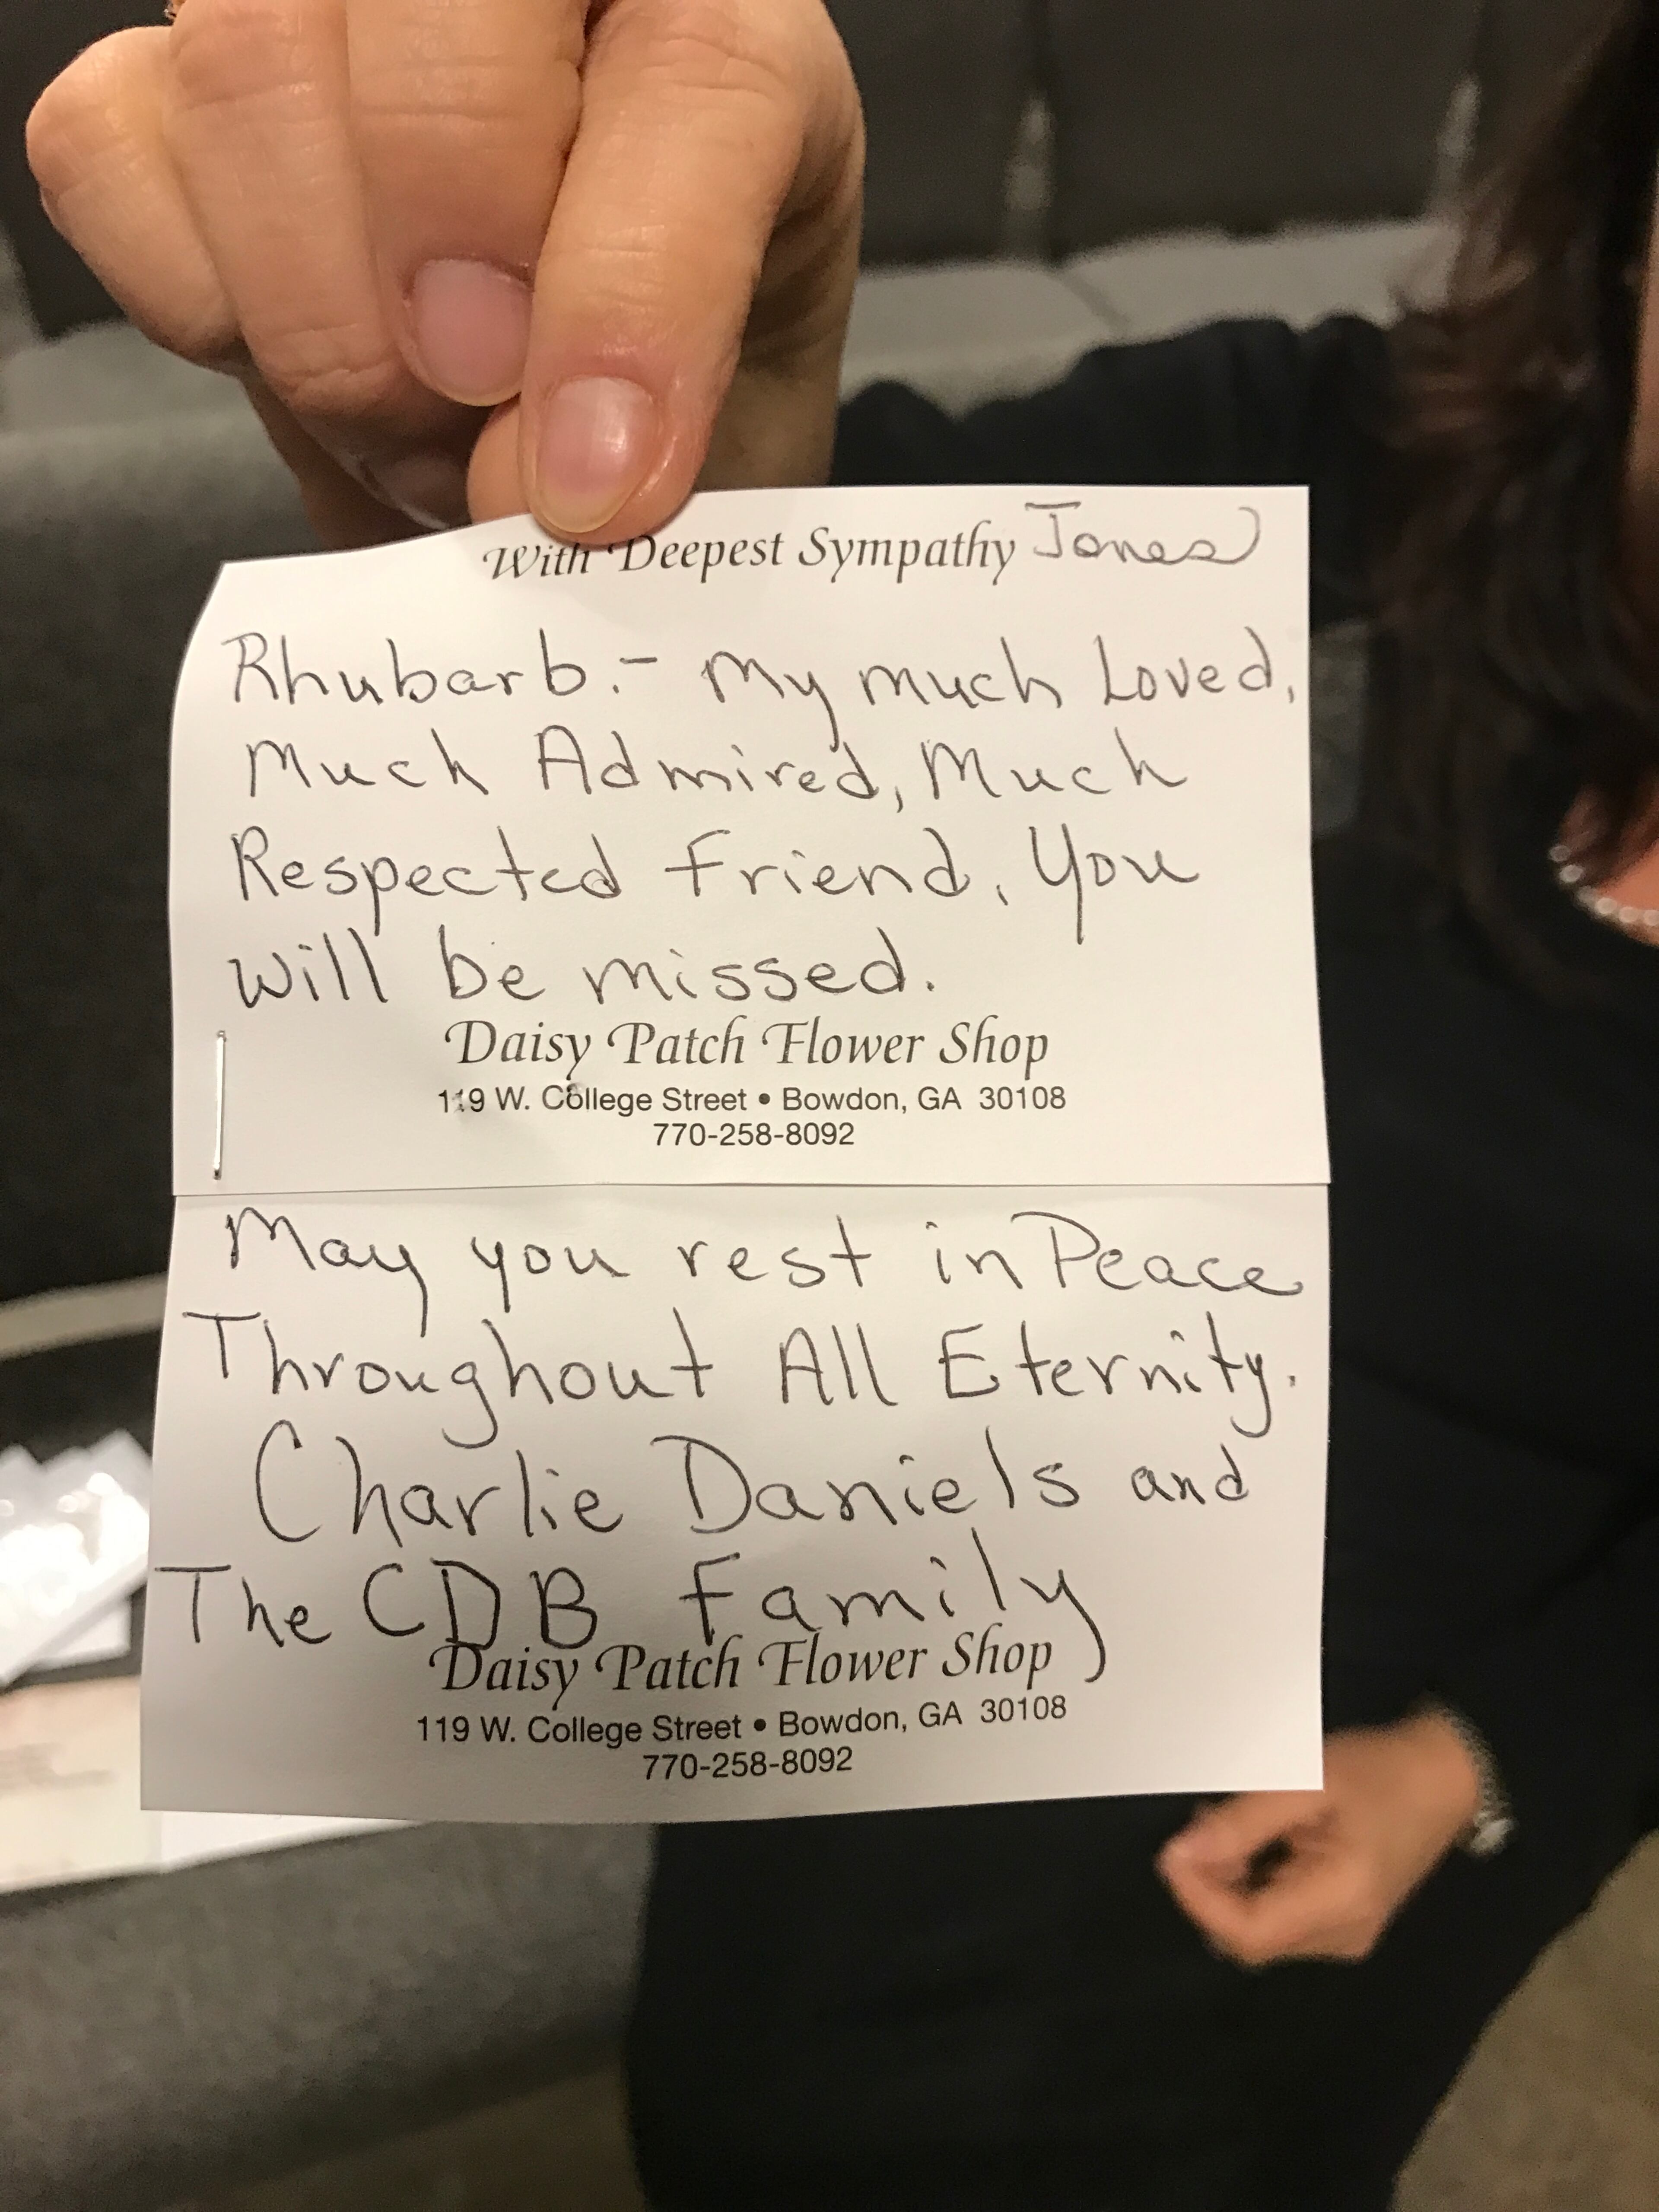 With Deepest Sympathy Jones
Rhubarb.- My much Loved,
Much Admired, Much
Respected friend, You
will be missed.
Daisy Patch Flower Shop
119 W. College Street • Bowdon, GA 30108
770-258-8092
May you rest in Peace
Throughout All Eternity.
Charlie Daniels and
The CDB family
Daisy Patch Flower Shop
119 W. College Street • Bowdon, GA 30108
770-258-8092